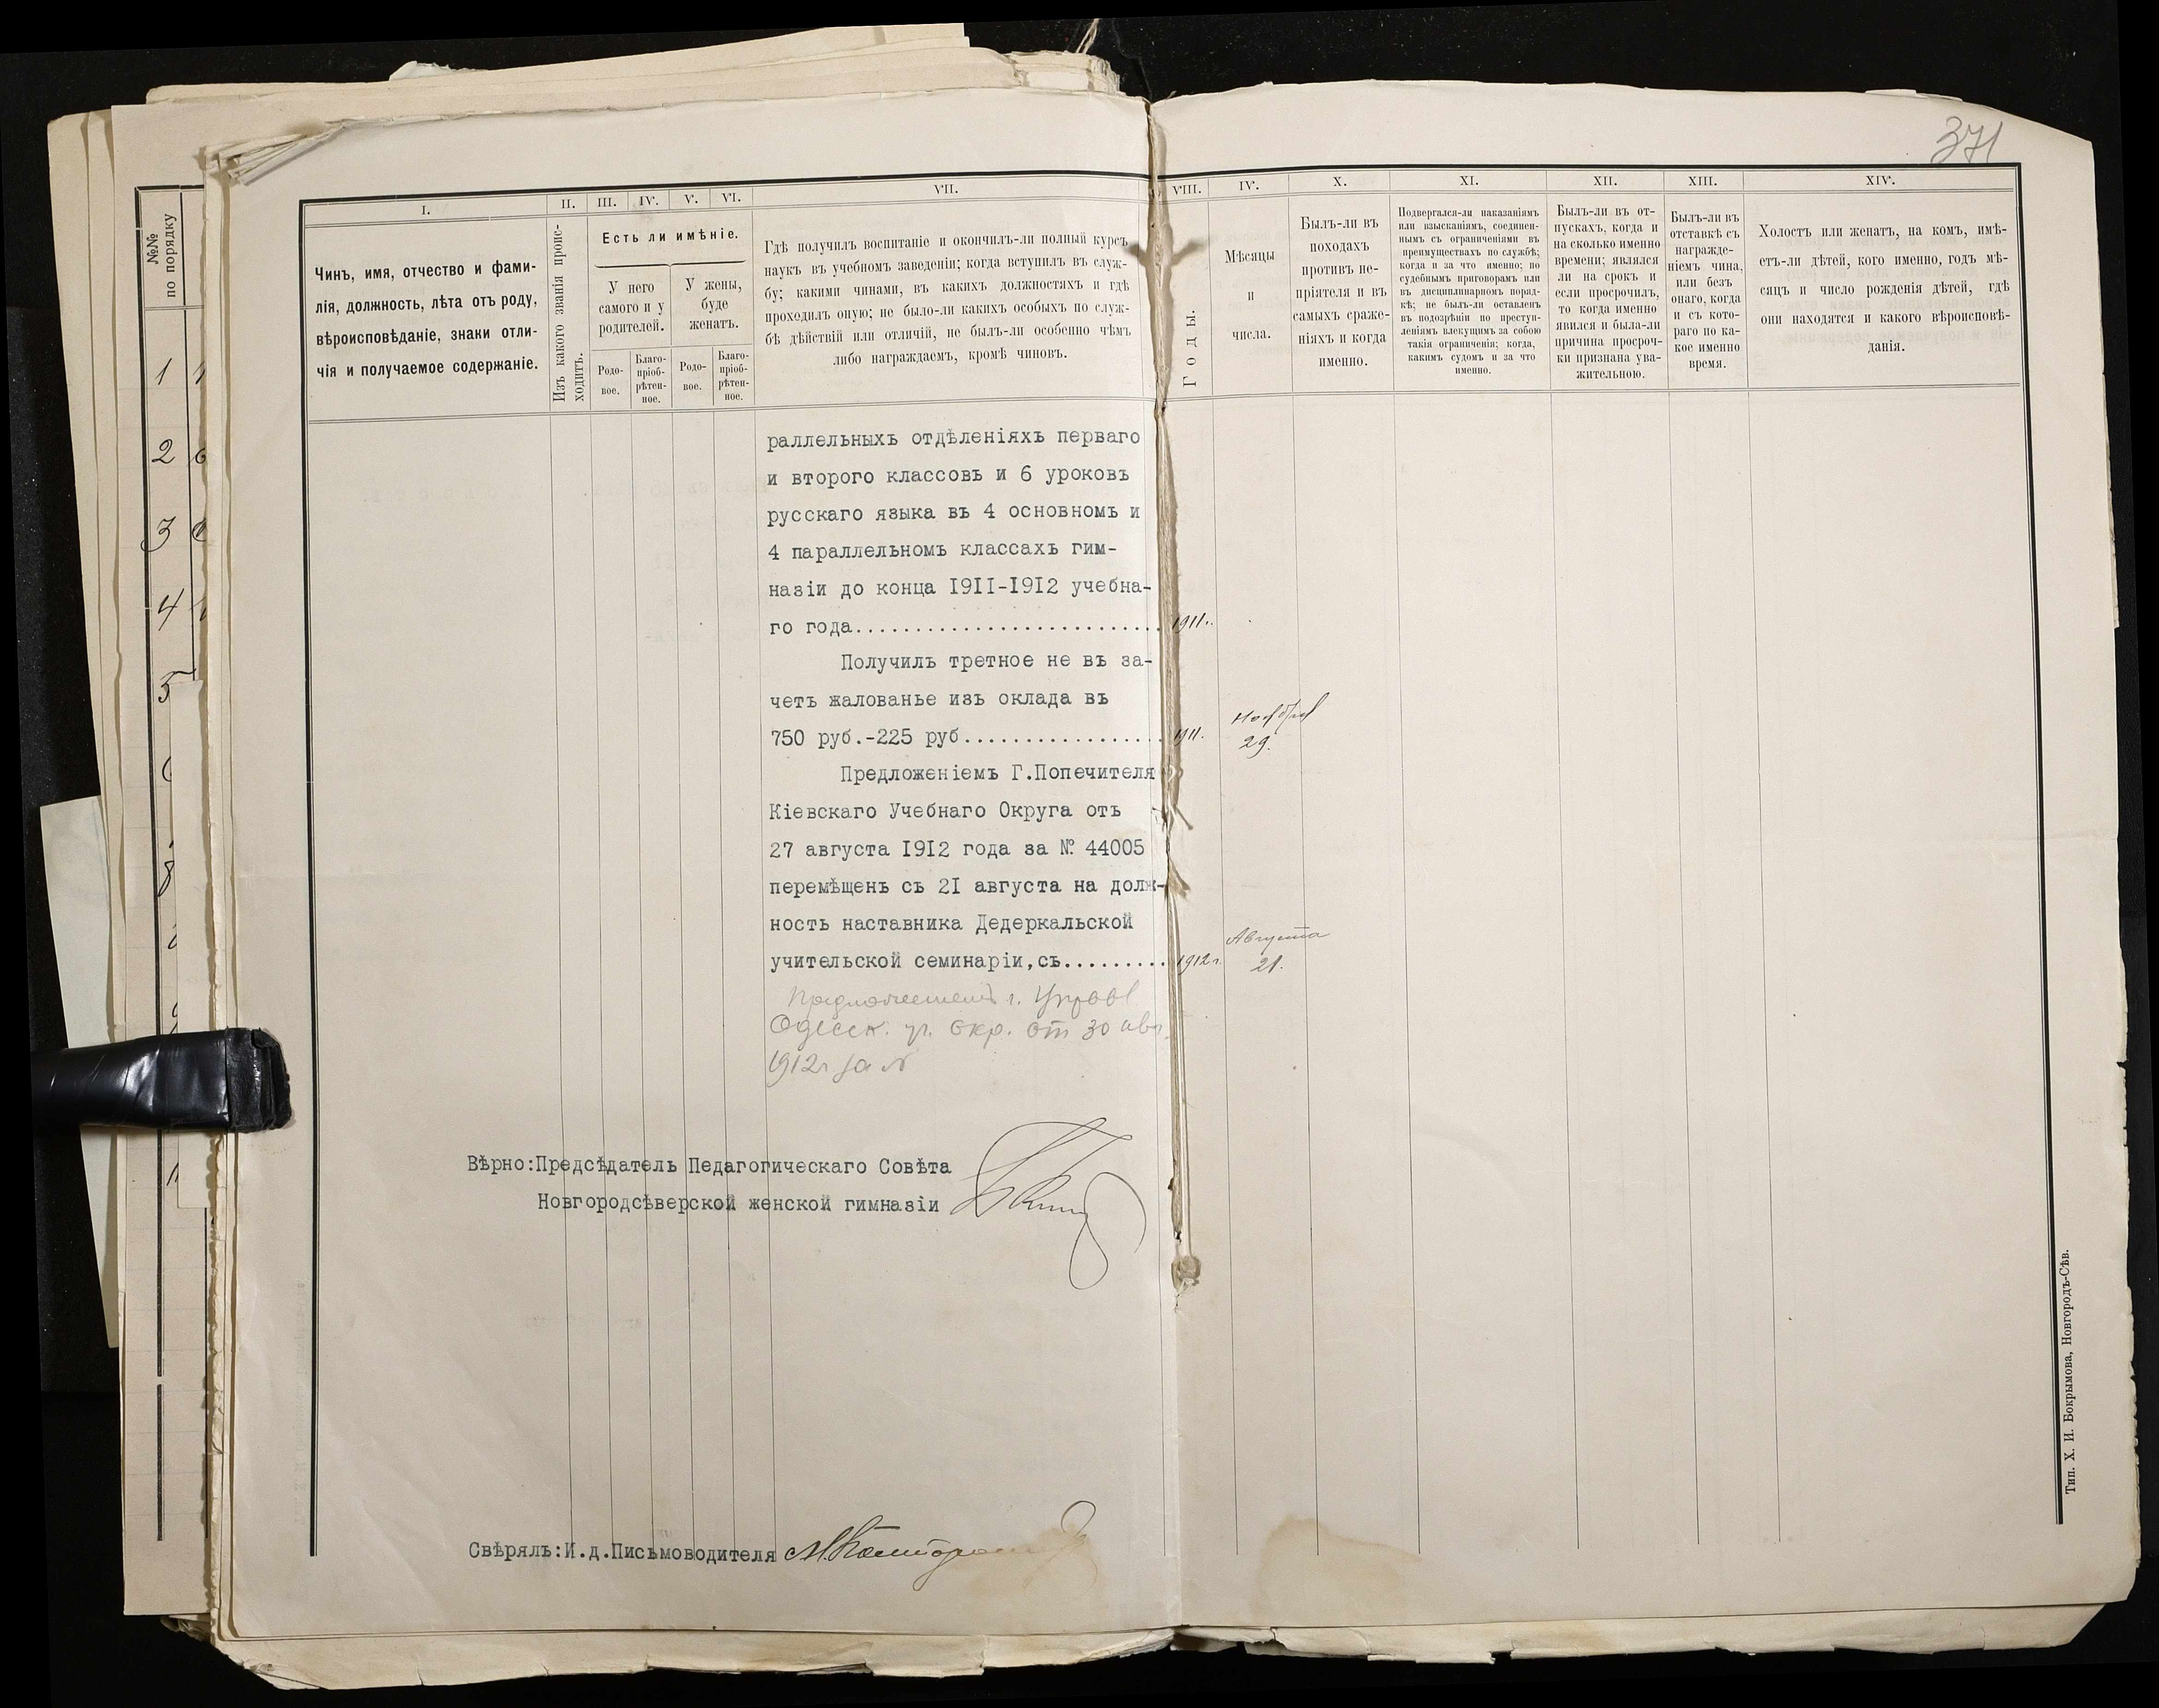 371
№№ по порядку
1
2
3
4
5
I.
II.
III.
IV.
V.
VI.
VII.
VIII.
IV.
X.
XI.
XII.
XIII.
XIV.
Чинъ, имя, отчество и фами-
лія, должность, лѣта отъ роду,
вѣроисповѣданіе, знаки отли-
чія и получаемое содержаніе.
Изъ какого званія проис-
ходитъ.
Есть ли имѣніе.
У него
самого и у
родителей.
У жены,
буде
женатъ.
Родо-
вое.
Благо-
пріоб-
рѣтен-
ное.
Родо-
вое.
Благо-
пріоб-
рѣтен-
ное.
Гдѣ получилъ воспитаніе и окончилъ-ли полный курсъ
наукъ въ учебномъ заведеніи; когда вступилъ въ служ-
бу; какими чинами, въ какихъ должностяхъ и гдѣ
проходилъ оную; не было-ли какихъ особыхъ по служ-
бѣ дѣйствій или отличій, не былъ-ли особенно чѣмъ
либо награждаемъ, кромѣ чиновъ.
Годы.
Мѣсяцы
и
числа.
Былъ-ли въ
походахъ
противъ не-
пріятеля и въ
самыхъ сраже-
ніяхъ и когда
именно.
Подвергался-ли наказаніямъ
или взысканіямъ, соединен-
нымъ съ ограниченіями въ
преимуществахъ по службѣ;
когда и за что именно; по
судебнымъ приговорамъ или
въ дисциплинарномъ поряд-
кѣ; не былъ-ли оставленъ
въ подозрѣніи по преступ-
леніямъ влекущимъ за собою
такія ограниченія; когда,
какимъ судомъ и за что
именно.
Былъ-ли въ от-
пускахъ, когда и
на сколько именно
времени; являлся
ли на срокъ и
если просрочилъ,
то когда именно
явился и была-ли
причина просроч-
ки признана ува-
жительною.
Былъ-ли въ
отставкѣ съ
награжде-
ніемъ чина,
или безъ
онаго, когда
и съ кото-
раго по ка-
кое именно
время.
Холостъ или женатъ, на комъ, имѣ-
етъ-ли дѣтей, кого именно, годъ мѣ-
сяцъ и число рожденія дѣтей, гдѣ
они находятся и какого вѣроисповѣ-
данія.
раллельныхъ отдѣленіяхъ перваго
и второго классовъ и 6 уроковъ
русскаго языка въ 4 основномъ и
4 параллельномъ классахъ гим-
назіи до конца 1911-1912 учебна-
го года.......................... 1911г.
Получилъ третное не въ за-
четъ жалованье изъ оклада въ
750 руб.-225 руб................. 1911. Ноября 29.
Предложеніемъ Г.Попечителя
Кіевскаго Учебнаго Округа отъ
27 августа 1912 года за № 44005
перемѣщенъ съ 21 августа на долж-
ность наставника Дедеркальской
учительской семинаріи,съ......... 1912г. Августа 21.
Предложением г. Управл
Одесск. уч. окр. от 30 авг.
1912г за №
Вѣрно:Предсѣдатель Педагогическаго Совѣта
Новгородсѣверской женской гимназіи
Свѣрялъ:И.д.Письмоводителя
Тип. Х. И. Бокрымова, Новгородъ-Сѣв.